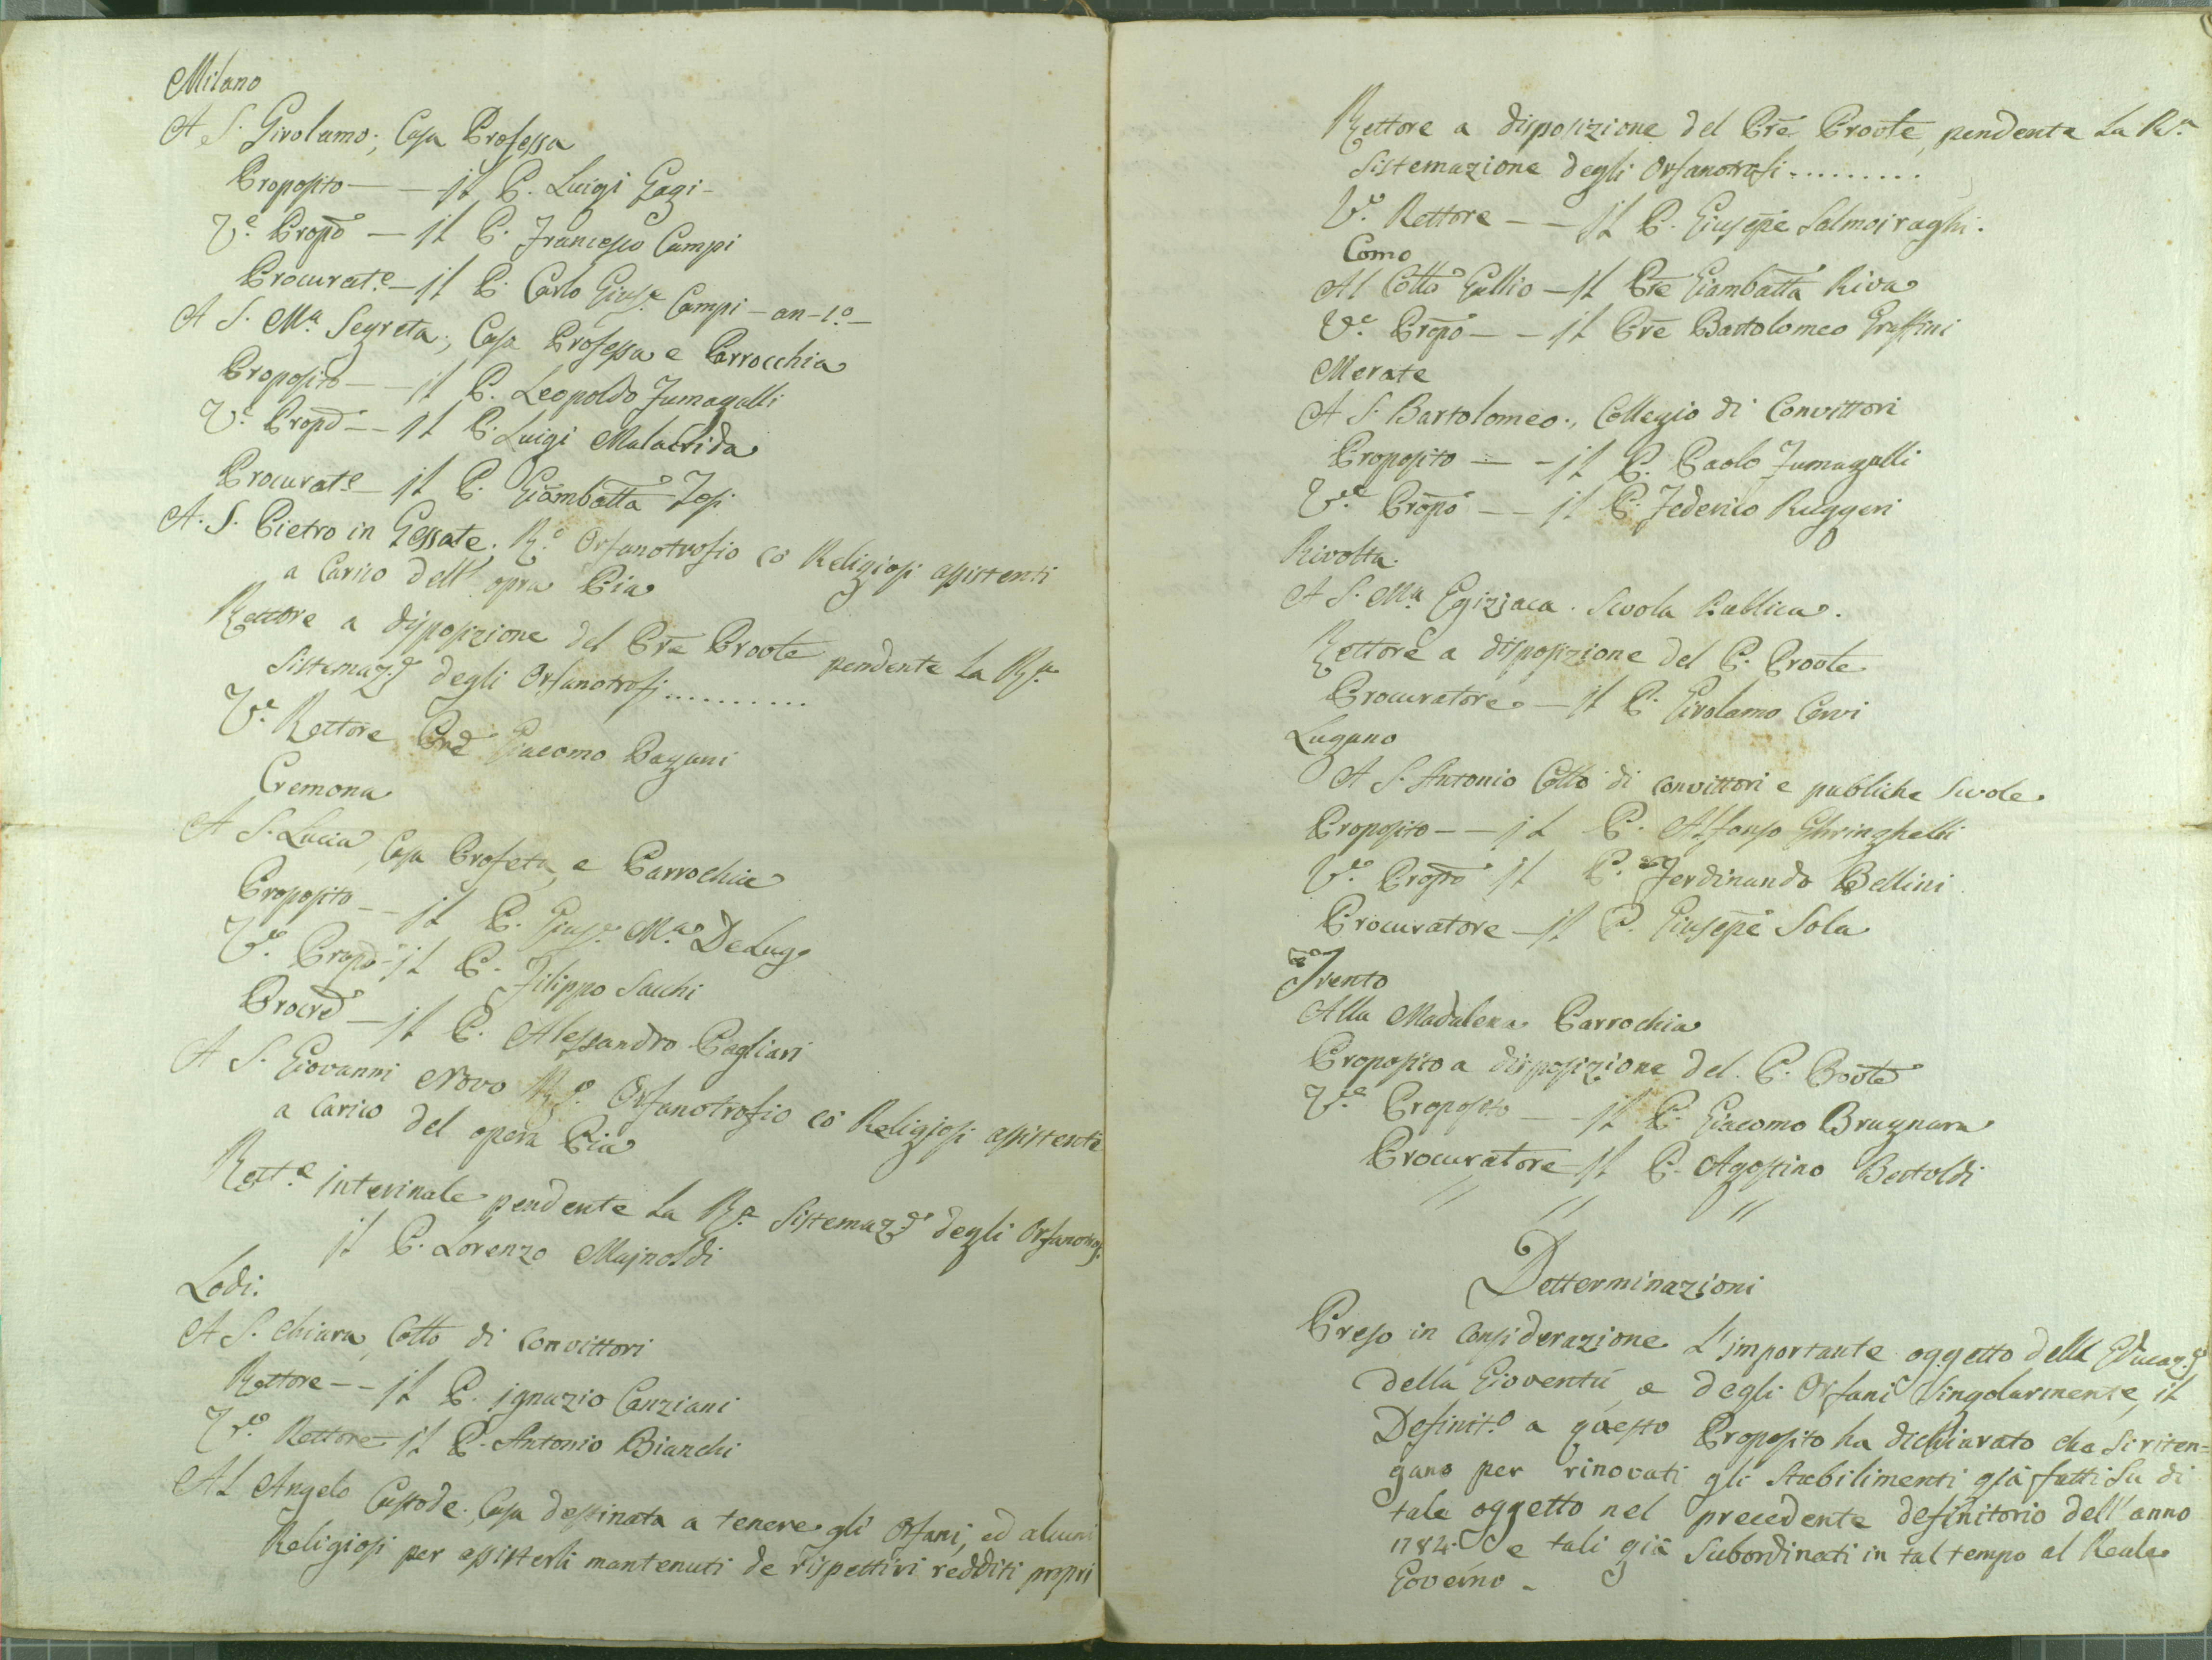 Milano
A S. Girolamo; Casa Professa
Proposito — — il P. Luigi Gagi -
V.e Propo — il P. Francesco Campi
Procurat.e — il P. Carlo Gius.e Campi - an - 1.o -
A S. M.a Segreta; Casa Professa e Parrocchia
Proposito — — il P. Leopoldo Fumagalli
V.e Propo — — il P. Luigi Malacrida
Procurat.e — il P. Giambatta
A. S. Pietro in Gessate; R.o Orfanotrofio cō Religiosi assistenti
a Carico dell' opra Pia
Rettore a disposizione del Pre Provle pendente la R.a
Sistemaz.e degli Orfanotrofj ..........
V.e Rettore Pre Giacomo Pagani
Cremona
A S. Lucia, Casa Profeta, e Parrochia
Proposito — — il P. Gius.e M.a DeLug.
V.e Propo - il P. Filippo Sacchi
Procre — il P. Alessandro Pagliari
A S. Giovanni Novo R.o Orfanotrofio cō Religiosi assistenti
a Carico del opera Pia
Rett.e interinale pendente la R.a Sistemaz.e degli Orfanotrof.
il P. Lorenzo Majnoldi
Lodi.
A S. Chiara, Collo di Convittori
Rettore — — il P. ignazio Canziani
V.e Rettore — il P. Antonio Bianchi
Al Angelo Custode. Casa destinata a tenere gli Orfani, ed alcuni
Religiosi per assisterli mantenuti de rispettivi redditi propri
Rettore a disposizione del Pre Provle, pendente la R.a
Sistemazione degli Orfanotrofi .........
V.e Rettore — — il P. Giusepe Salmoiraghi.
Como
Al Collo Gallio — il Pre Giambatta Riva
V.e Propo — — il Pre Bartolomeo Graffini
Merate
A S. Bartolomeo; Collegio di Convittori
Proposito — — il P. Paolo Fumagalli
V.e Propo — — il P. Federico Ruggeri
Rivolta.
A S. M.a Egiziaca. Scola Publica.
Rettore a disposizione del P. Provle
Procuratore — il P. Girolamo Cervi
Lugano
A S. Antonio Collo di Convittori e publiche Scole
Proposito — — il P. Alfonso Ghringhelli
V.e Propto il P. Ferdinando Bellini
Procuratore — il P. Giusepe Sola
Trento
Alla Madalena Parrochia
Proposito a disposizione del P. Povle
V.e Proposito — — il P. Giacomo Brugnara
Procuratore il P. Agostino Bertoldi
" " "
Detterminazioni
Preso in Considerazione L'importante oggetto dell Educaz.e
della Gioventù, e degli Orfani Singolarmente, il
Definit.o a questo Proposito ha dichiarato che si riten=
gano per rinovati gli Stabilimenti già fatti su di
tale oggetto nel precedente definitorio dell'anno
1784. e tali già Subordinati in tal tempo al Reale
Governo -